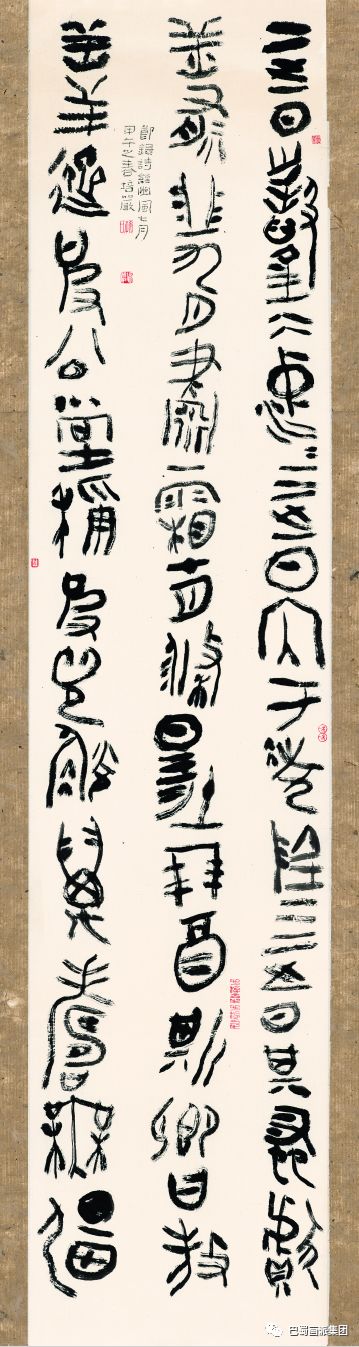 二之日鑿冰沖沖三之日内于凌陰四之日其蚤獻
羔祭韭九月肅霜十月滌場朋酉斯鄉曰殺
節錄詩經豳風七月
甲午之春培
羔羊躋彼公堂稱彼兕觥萬壽無疆
巴蜀画派集团